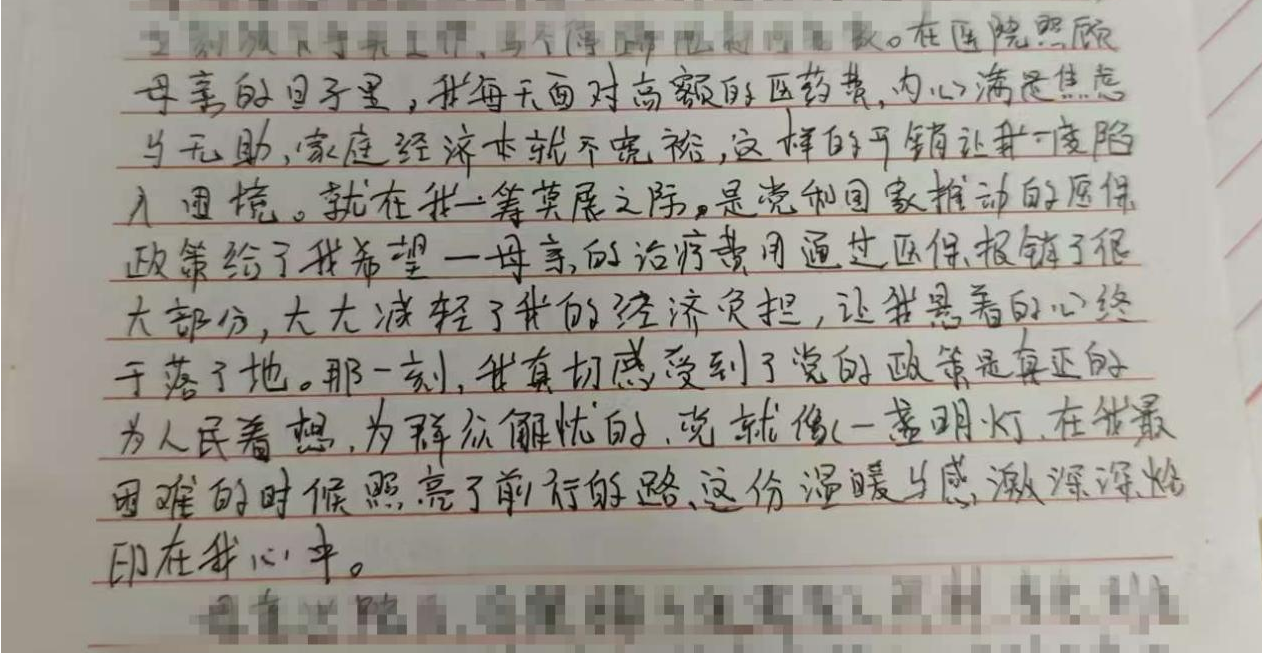 。在医院照顾
母亲的日子里，我每天面对高额的医药费，内心满是焦虑
与无助，家庭经济本就不宽裕，这样的开销让我一度陷
入困境。就在我一筹莫展之际，是党和国家推动的医保
政策给了我希望一母亲的治疗费用通过医保报销了很
大部分，大大减轻了我的经济负担，让我悬着的心终
于落了地。那一刻，我真切感受到了党的政策是真正的
为人民着想，为群众解忧的，党就像一盏明灯，在我最
困难的时候照亮了前行的路，这份温暖与感激深深烙
印在我心中。